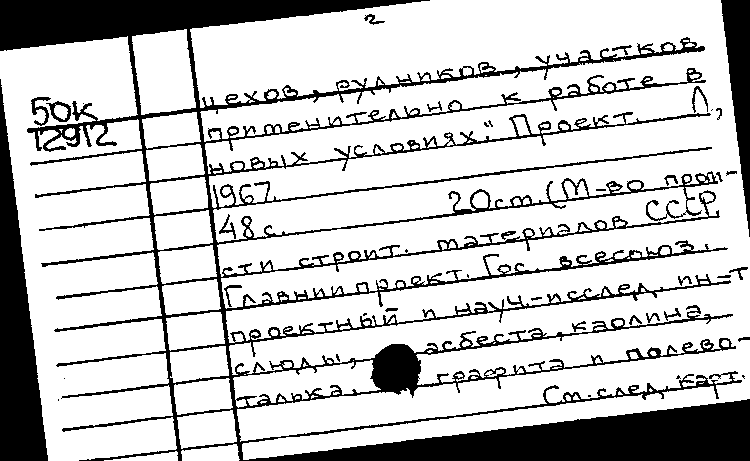 2
50К
12912
цехов, рудников, участков
применительно к работе в
новых условиях." Проект. Л,
1967.
48 с. 20 cm. (М-во пром-
сти строит. материалов СССР.
Главниипроект. Гос. всесоюз.
проектный и науч.-исслед. ин-т
слюды, асбеста, каолина,
талька, графита и полево-
См. след. карт.